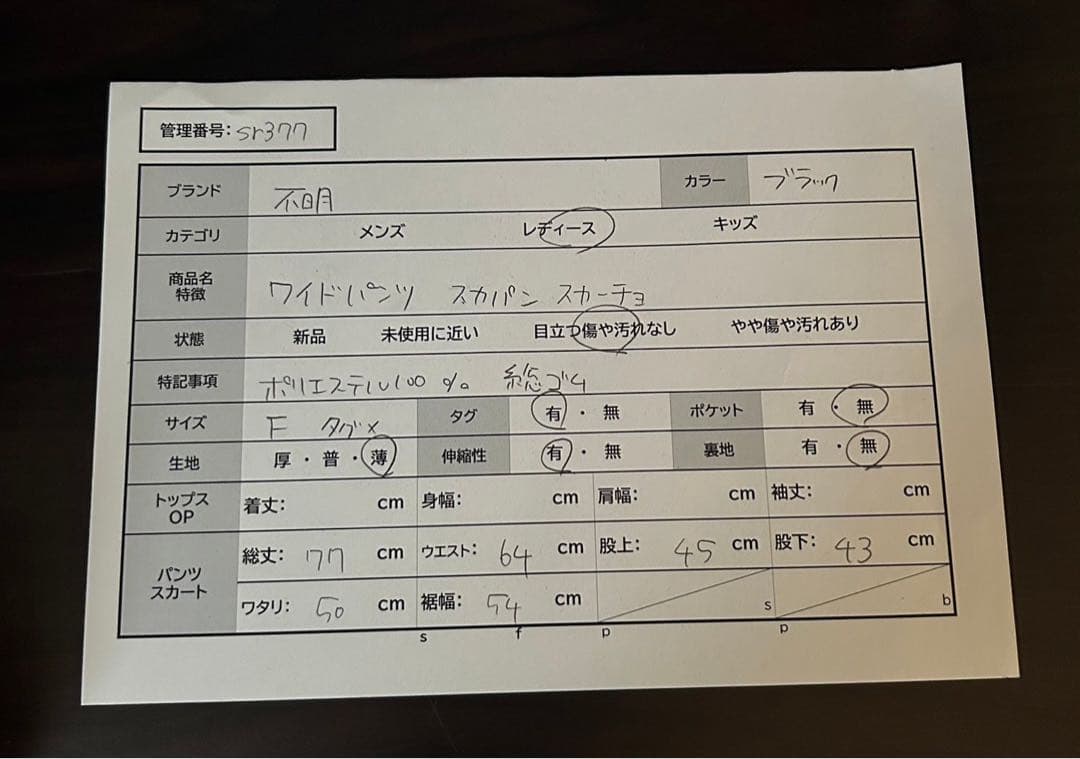 管理番号: sr377
ブランド 不明 カラー ブラック
カテゴリ メンズ レディース キッズ
商品名 特徴 ワイドパンツ スカパン スカーチョ
状態 新品 未使用に近い 目立つ傷や汚れなし やや傷や汚れあり
特記事項 ポリエステル100% 総ゴム
サイズ F タグ× タグ 有・無 ポケット 有・無
生地 厚・普・薄 伸縮性 有・無 裏地 有・無
トップス OP 着丈: cm 身幅: cm 肩幅: cm 袖丈: cm
パンツ スカート 総丈: 77 cm ウエスト: 64 cm 股上: 45 cm 股下: 43 cm
ワタリ: 50 cm 裾幅: 54 cm s b
s f p p